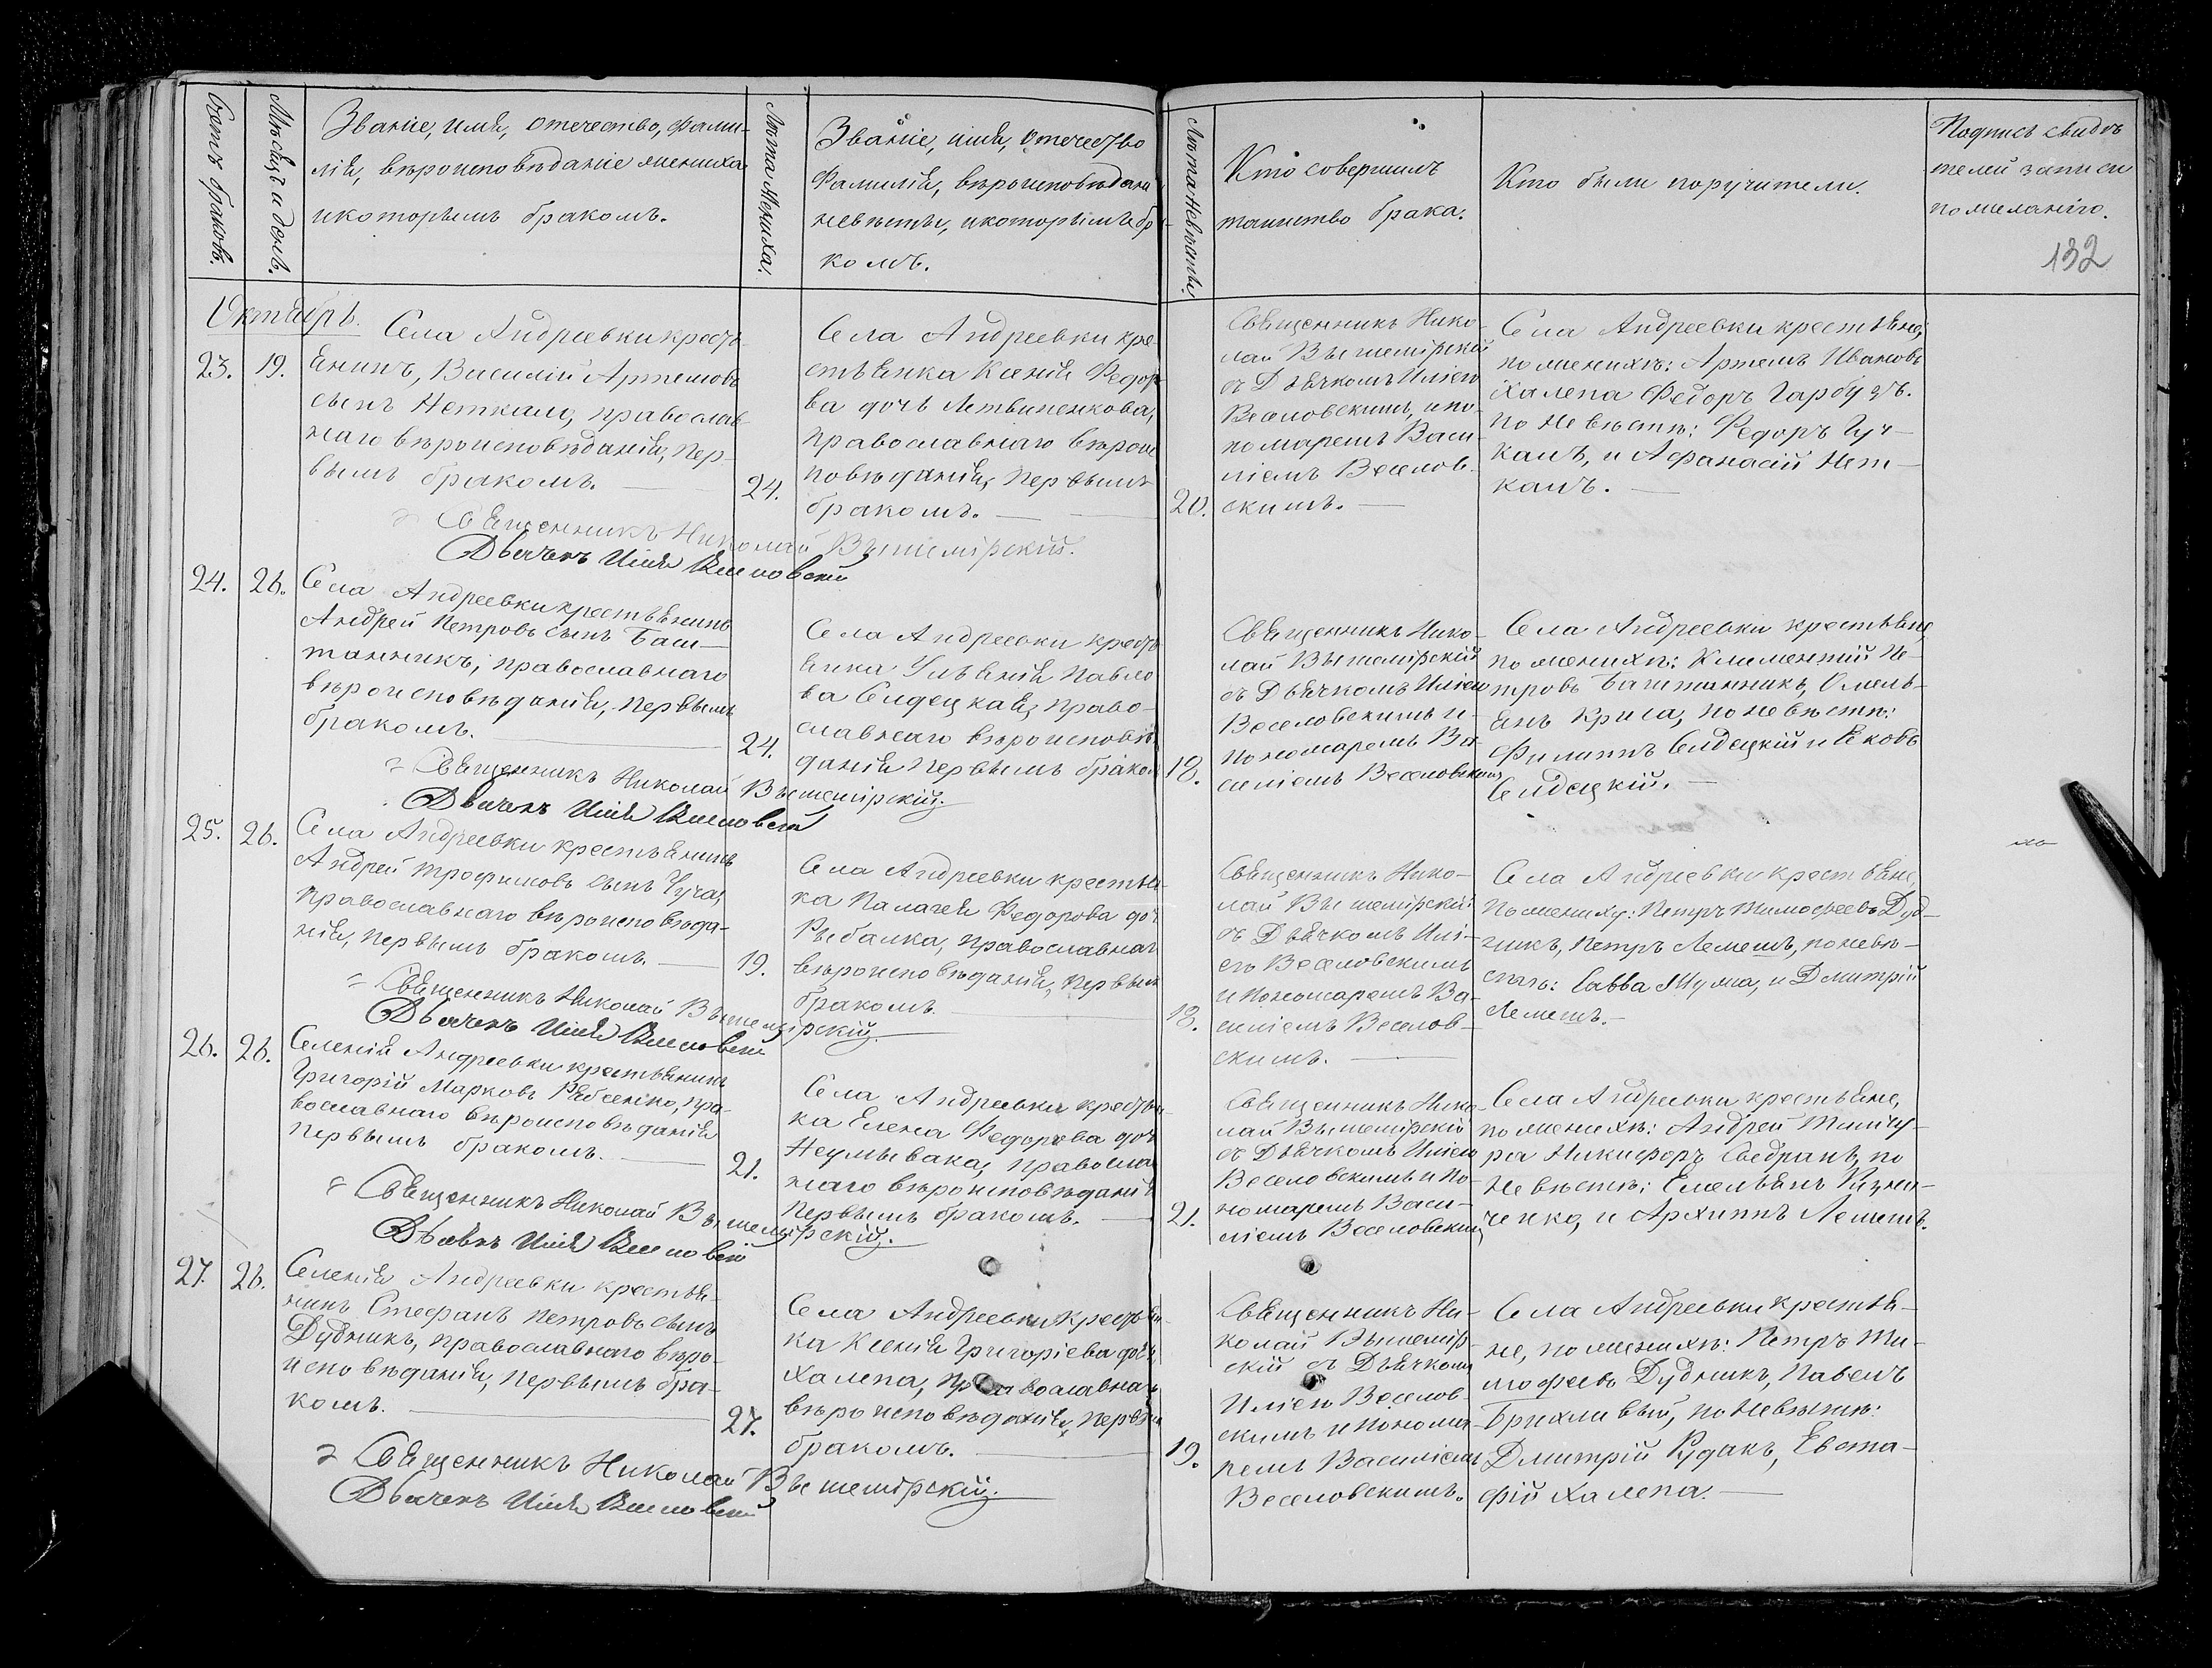 Счетъ браковъ.
Мѣсяцъ и день.
Званіе, имя, отечество, фами-
лія, вѣроисповѣданіе жениха
и которымъ бракомъ.
Лѣта Жениха.
Званіе, имя, отечество
фамилія, вѣроисповѣдані
невѣсты, и которымъ бра-
комъ.
Лѣта Невѣсты.
Кто совершилъ
таинство брака.
Кто были поручители.
Подпись свидѣ
телей записи
по желанію.
132
Октябрь.
23. 19.
Села Андреевки кресть
янинъ, Василій Артемовъ
сынъ Неткалъ, православ
наго вѣроисповѣданія, пер-
вымъ бракомъ.
24.
Села Андреевки кре
стьянка Ксенія Федоро
ва дочь Литвиненкова,
православнаго вѣроис
повѣданія, первымъ
бракомъ.
20.
Священникъ Нико-
лай Вышемірскій
съ Дьячкомъ Иліею
Веселовскимъ, и по-
номаремъ Васи-
ліемъ Веселов-
скимъ.
Села Андреевки крестьяне,
по женихѣ: Артемъ Ивановъ
Халепа Федоръ Гарбузъ.
по Невѣстѣ: Федоръ Гуч-
калъ, и Афанасій Нет-
калъ.
Священникъ Николай Вышемірскій.
Дьячекъ Илія Веселовскій
24. 26.
Села Андреевки крестьянинъ
Андрей Петровъ сынъ Баш-
танникъ, православнаго
вѣроисповѣданія, первымъ
бракомъ.
24.
Села Андреевки кресть
янка Ульянія Павло
ва Сидецкая, право-
славнаго вѣроисповѣ
данія первымъ бракомъ
18.
Священникъ Нико-
лай Вышемірскій
съ Дьячкомъ Иліею
Веселовскимъ и
пономаремъ Ва-
силіемъ Веселовскимъ
Села Андреевки крестьяне
по женихѣ: Климентій Пе-
тровъ Баштанникъ, Омель-
янъ Криса, по невѣстѣ:
Филиппъ Сидецкій и Яковъ
Сидецкій.
Священникъ Николай Вышемірскій.
Дьячекъ Илія Веселовскій
25. 26.
Села Андреевки крестьянинъ
Андрей Трофимовъ сынъ Чуча,
православнаго вѣроисповѣда-
нія, первымъ бракомъ.
19.
Села Андреевки крестьян-
ка Палагея Федорова доч
Рыбалка, православнаг
вѣроисповѣданія, первым
бракомъ.
18.
Священникъ Нико-
лай Вышемірскій
съ Дьячкомъ Илі-
ею Веселовскимъ
и Пономаремъ Ва-
силіемъ Веселов-
скимъ.
Села Андреевки крестьяне,
по жениху: Петръ Тимофеевъ Дуд-
никъ, Петръ Лемешъ, по невѣ-
стѣ: Савва Шума, и Дмитрій
Лемешъ.
Священникъ Николай Вышемірскій.
Дьячекъ Илія Веселовскій
26. 26.
Селенія Андреевки крестьянинъ
Григорій Марковъ Рябченко, пра-
вославнаго вѣроисповѣданія
первымъ бракомъ.
21.
Села Андреевки крестьян
ка Елена Федорова доч
Неумывака, православ
наго вѣроисповѣданія
первымъ бракомъ.
21.
Священникъ Нико-
лай Вышемірскій
съ Дьячкомъ Иліею
Веселовскимъ и По-
номаремъ Васи-
ліемъ Веселовским
Села Андреевки крестьяне,
по женихѣ: Андрей
Никифоръ по
невѣстѣ: Емельянъ Кузне-
ченко, и Архиппъ Лемешъ.
Священникъ Николай Вышемірскій.
Дьячекъ Илія Веселовскій
27. 26.
Селенія Андреевки крестья-
нинъ Стефанъ Петровъ сынъ
Дудникъ, православнаго вѣро-
исповѣданія, первымъ бра-
комъ.
27.
Села Андреевки крестьян-
ка Ксенія Григоріева доч
Халепа, православнаг
вѣроисповѣданія, первым
бракомъ.
19.
Священникъ Ни-
колай Вышемір-
скій съ Дьячкомъ
Иліею Веселов-
скимъ и Понома-
ремъ Василіемъ
Веселовскимъ.
Села Андреевки крестья-
не, по женихѣ: Петръ Ти-
мофеевъ Дудникъ, Павелъ
Брихливый, по Невѣстѣ:
Дмитрій Рудакъ, Евста-
фій Халепа.
Священникъ Николай Вышемірскій.
Дьячекъ Илія Веселовскій